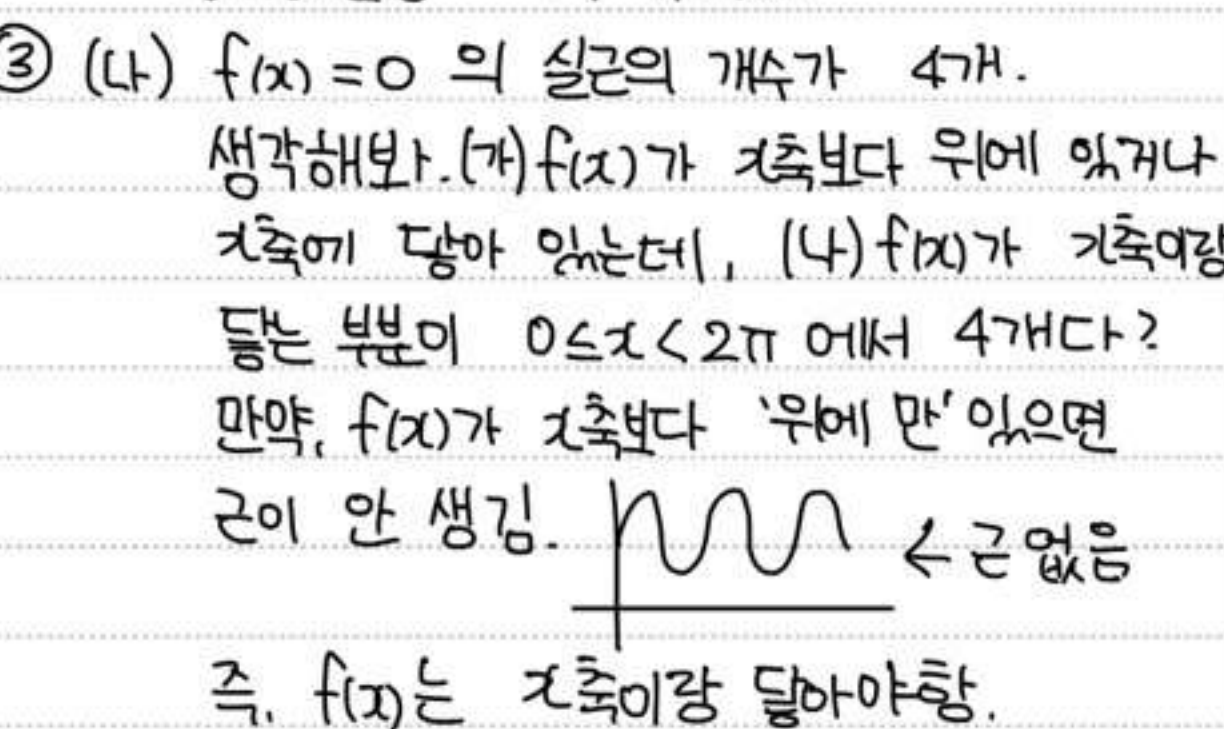 ③ (나) f(x)=0 의 실근의 개수가 4개.
생각해봐. (가) f(x)가 x축보다 위에 있거나
x축에 닿아 있는데, (나) f(x)가 x축이랑
닿는 부분이 0≤x<2π 에서 4개다?
만약, f(x)가 x축보다 '위에 만' 있으면
근이 안 생김. ← 근 없음
즉, f(x)는 x축이랑 닿아야함.